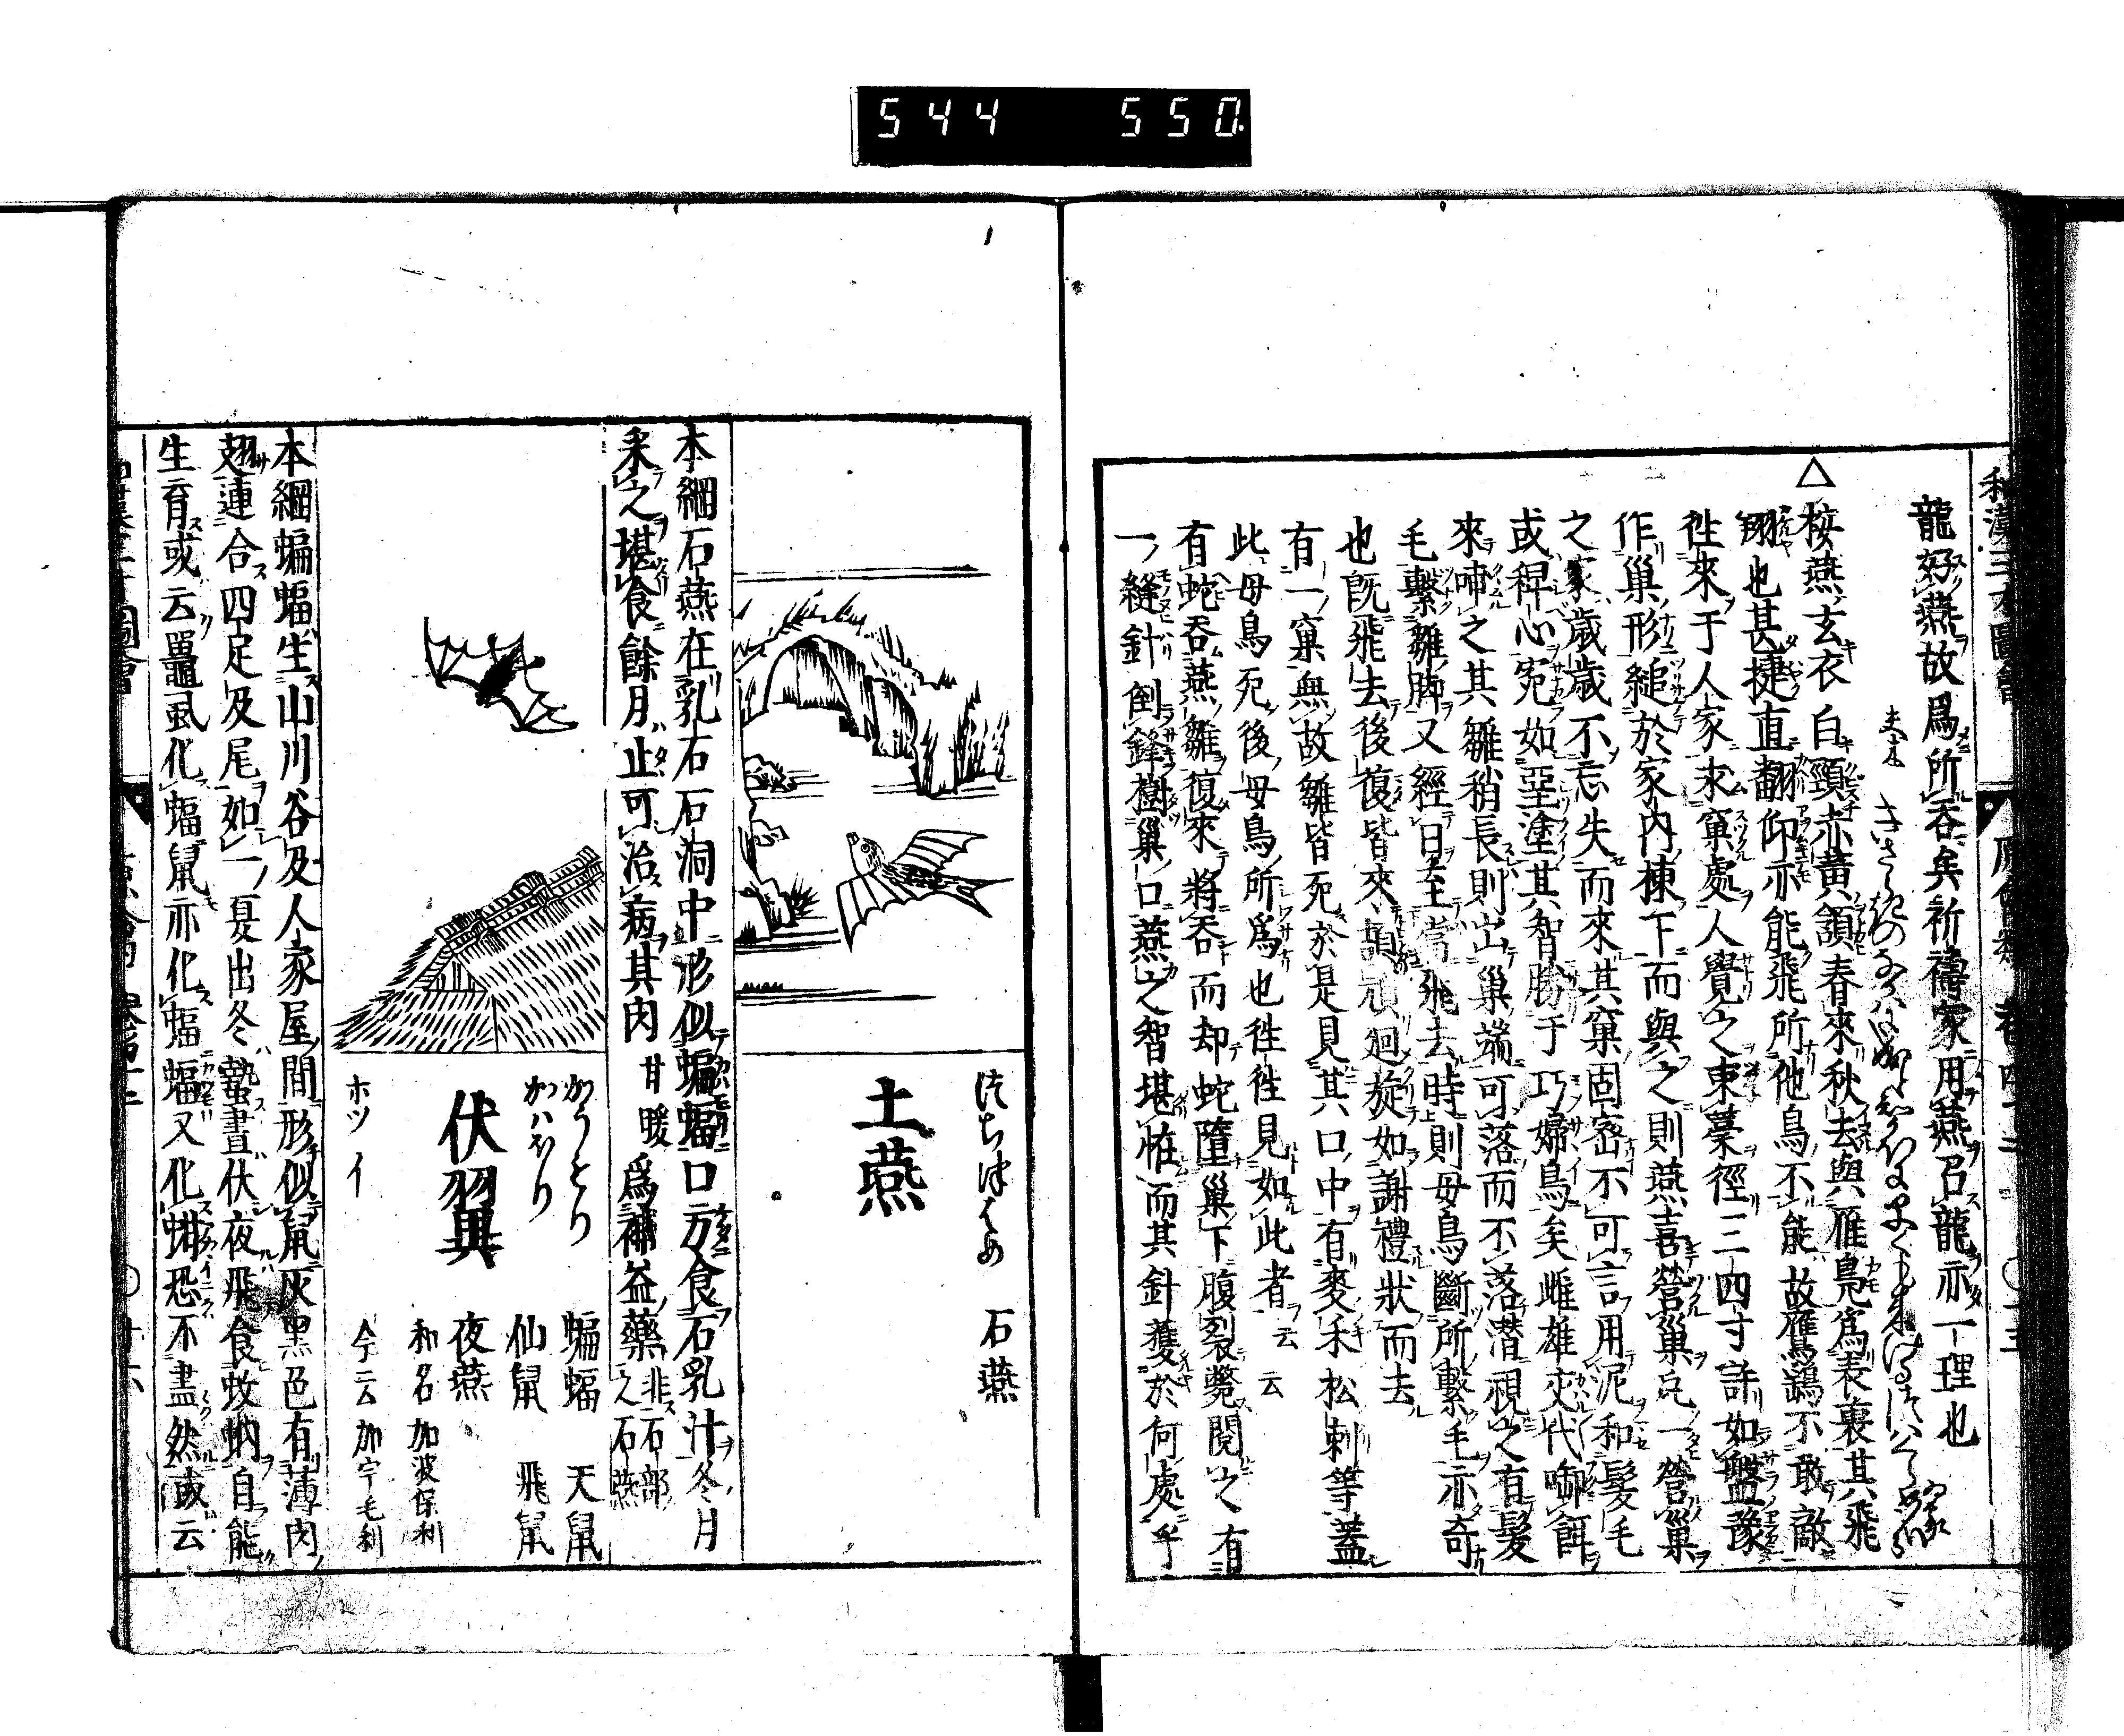 544 550
和漢三才圖會
龍好燕故爲所呑矣祈禱家用燕召龍亦一理也
△
按燕玄衣白頸赤黃頷春來秋去與雁鳬爲表裏其飛
翩也甚捷直翻仰亦能飛所他鳥不能故鷹鷂不敢敵
徃來于人家求窠處人覺之束藁徑三四寸許如盤豫
作巢形縋於家内棟下而與之則燕喜營巢
之家歳歳不忘失而來其窠固宻不可言用泥和髮毛
或稗心宛如堊塗其智勝于巧婦鳥矣雌雄交代啣餌
來哺之其雛稍長則出巢端可落而不落濳視之有髮
毛繫雛脚又經日至當飛去時則母鳥斷所繫毛亦奇
也既飛去後復皆來
廻旋如謝禮狀而去
有一窠無故雛皆死於是見其口中有麥禾松刺等蓋
此母鳥死後母鳥所爲也徃徃見如此者云云
有蛇呑燕雛復來將呑而却蛇墮巢下腹裂斃閲之有
一縫針倒鋒樹巢口燕之智堪恠而其針獲於何處乎
つちつばめ
石燕
土燕
本綱石燕在乳石石洞中形似蝙蝠口方食石乳汁冬月
采之堪食餘月止可治病其肉甘暖爲補益藥非石部之石燕
かうもり
かハほり
伏翼
ホツ イ
蝙蝠 天鼠
仙鼠 飛鼠
夜燕
和名加波保利
今云加宇毛利
本綱蝙蝠生山川谷及人家屋間形似鼠灰黒色有薄肉
翅連合四足及尾如一夏出冬蟄晝伏夜飛食蚊蚋自能
生育或云鼉虱化蝠鼠亦化蝠蝠又化蚶恐不盡然或云